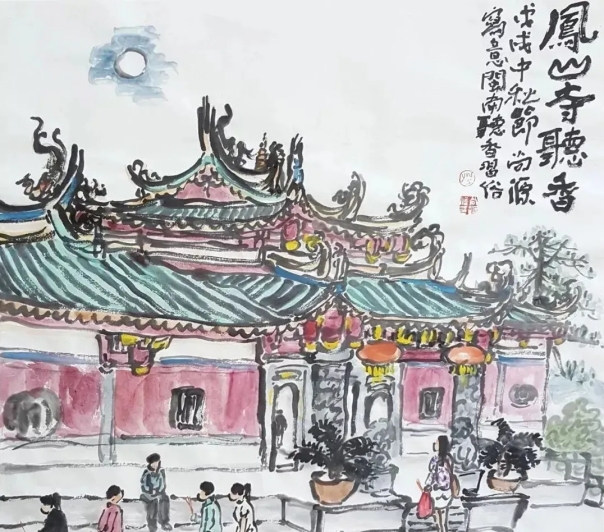 鳳山寺聽香
戊戌中秋節尚源
寫意閩南聽香習俗